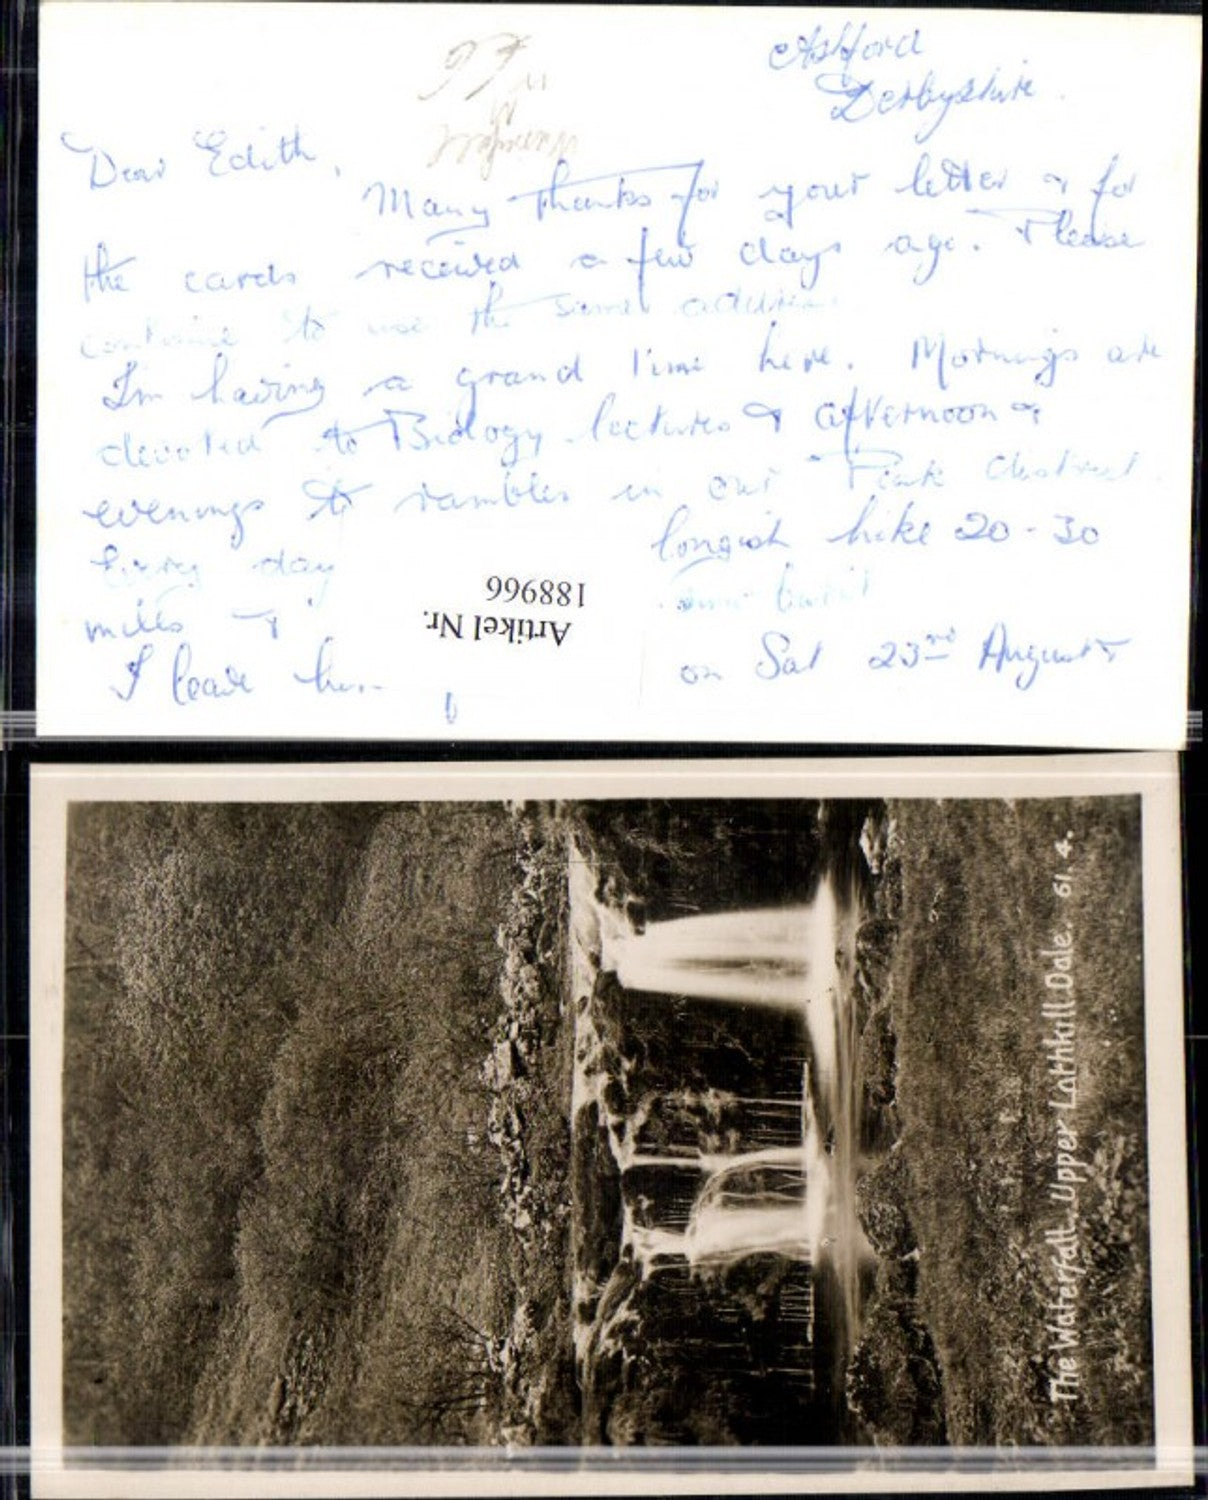 Ashford
Derbyshire.
Dear Edith,
Many thanks for your letter & for
the cards received a few days ago. Please
continue to use the same address.
I'm having a grand time here. Mornings are
devoted to Biology lectures & afternoon &
evenings to rambles in our Peak District.
Every day longish hike 20-30
miles &
I leave on Sat 23rd August
Artikel Nr.
188966
Waterfall
The Waterfall. Upper Lathkill Dale. 61. 4.